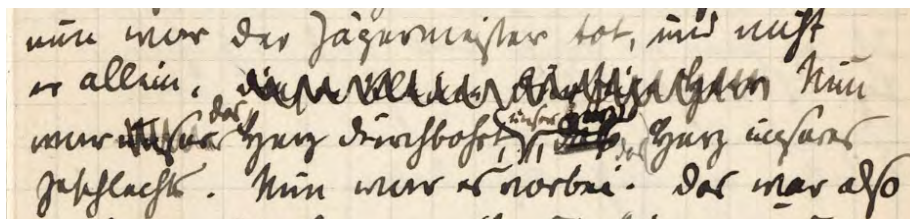 nun war der Jägermeister tot, und nicht
er allein. Nun
war das Herz durchbohrt, unser das Herz unseres
Geschlechts. Nun war es vorbei. Das war also